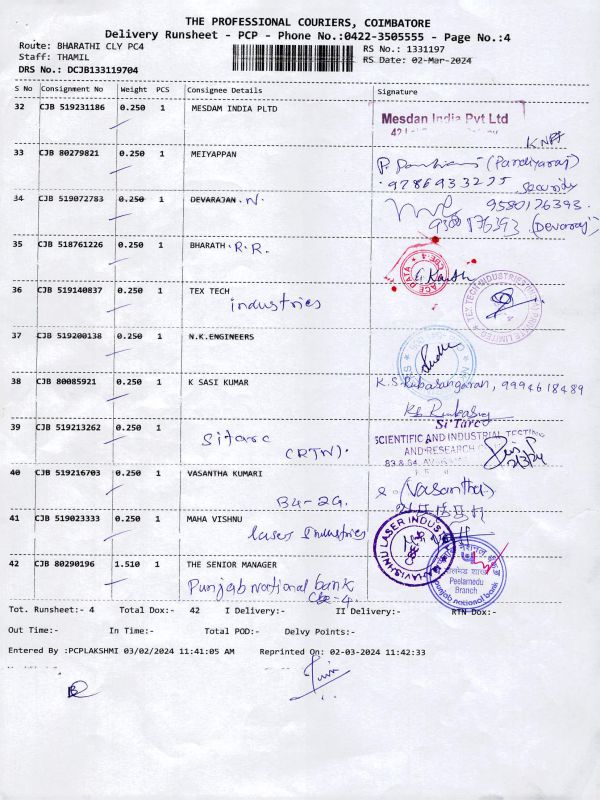 THE PROFESSIONAL COURIERS, COIMBATORE
Delivery Runsheet - PCP - Phone No.:0422-3505555 - Page No.:4
Route: BHARATHI CLY PC4
RS No.: 1331197
Staff: THAMIL
RS Date: 02-Mar-2024
DRS No.: DCJB133119704
S No Consignment No Weight PCS Consignee Details Signature
32 CJB 519231186 0.250 1 MESDAM INDIA PLTD Mesdan India Pvt Ltd
33 CJB 80279821 0.250 1 MEIYAPPAN (Pandiyaraj)
9786933275 Security
34 CJB 519072783 0.250 1 DEVARAJAN. N. 9580126393
(Devaraj)
35 CJB 518761226 0.250 1 BHARATH. R. R.
36 CJB 519140837 0.250 1 TEX TECH
industries
TEX TECH INDUSTRIES PRIVATE LIMITED
37 CJB 519200138 0.250 1 N.K.ENGINEERS
38 CJB 80085921 0.250 1 K SASI KUMAR K.S. 9994618489
39 CJB 519213262 0.250 1 Si'Tarc
Sitarc
(RTN).
SCIENTIFIC AND INDUSTRIAL TESTING
AND RESEARCH
2/3/24
40 CJB 519216703 0.250 1 VASANTHA KUMARI (Vasantha)
B4-2G.
41 CJB 519023333 0.250 1 MAHA VISHNU
Laser Industries
42 CJB 80290196 1.510 1 THE SENIOR MANAGER
Punjab National bank
Cbe-4.
Peelamedu
Branch
punjab national bank
Tot. Runsheet:- 4 Total Dox:- 42 I Delivery:- II Delivery:- RTN Dox:-
Out Time:- In Time:- Total POD:- Delvy Points:-
Entered By :PCPLAKSHMI 03/02/2024 11:41:05 AM Reprinted On: 02-03-2024 11:42:33